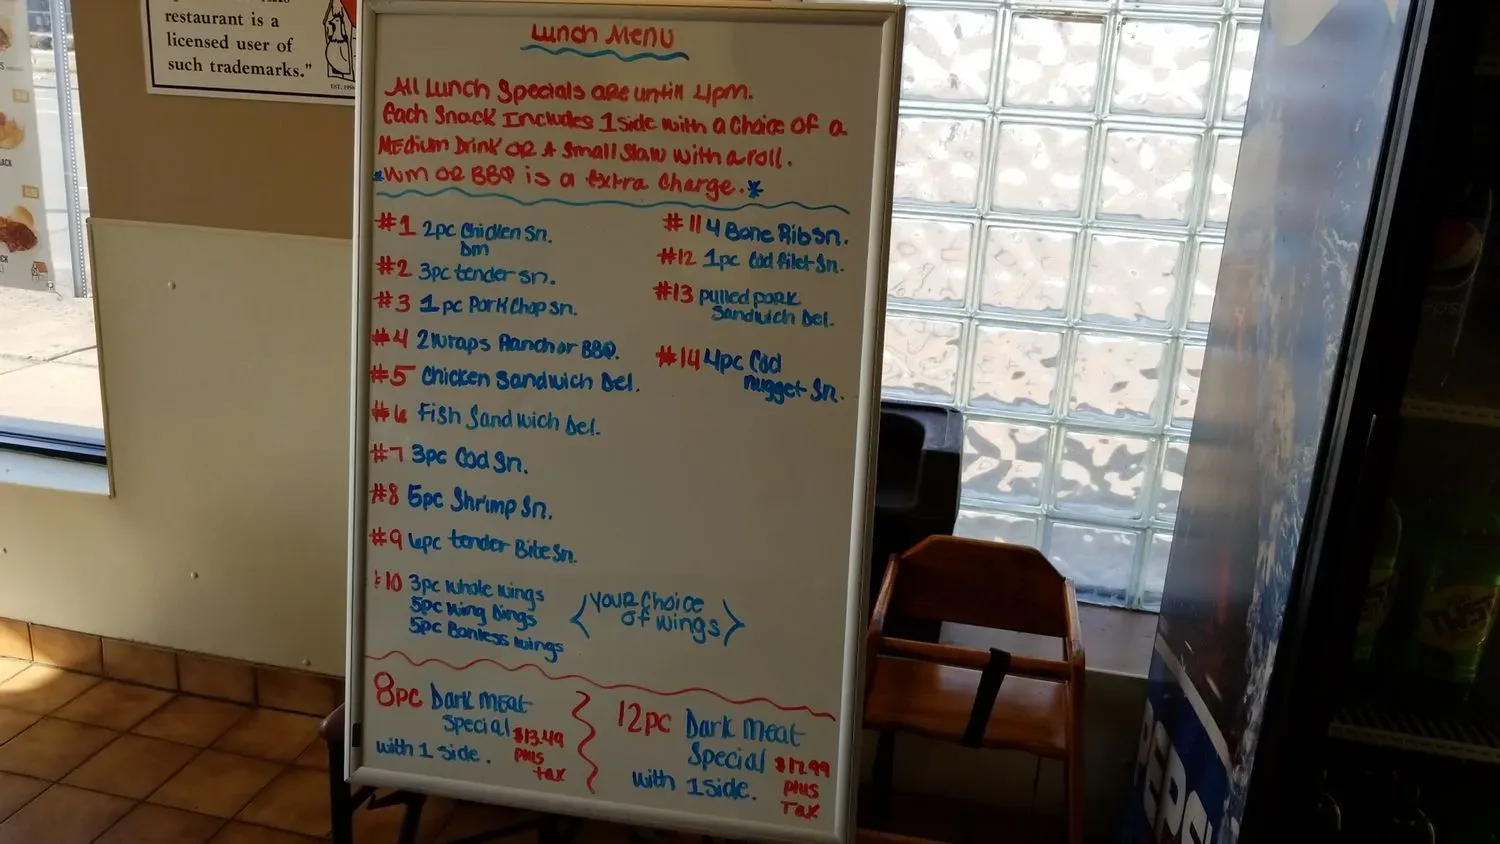 restaurant is a
licensed user of
such trademarks."
EST. 1990
Lunch Menu
All Lunch Specials are untill 4pm.
Each Snack Includes 1 side with a choice of a
Medium Drink or A small slaw with a roll.
*Wm or BBQ is a extra charge.*
#1 2pc Chicken Sn.
Dm
#2 3pc tender Sn.
#3 1pc Pork Chop Sn.
#4 2 Wraps Ranch or BBQ.
#5 Chicken Sandwich Del.
#6 Fish Sandwich Del.
#7 3pc Cod Sn.
#8 5pc Shrimp Sn.
#9 6pc tender Bite Sn.
#10 3pc whole wings
5pc Wing Dings
5pc Bonless wings
<Your Choice
of wings>
#11 4 Bone Rib Sn.
#12 1pc Cod Filet Sn.
#13 pulled pork
Sandwich Del.
#14 4pc Cod
nugget Sn.
8pc Dark Meat
Special $13.49
with 1 side. plus
tax
12pc Dark Meat
Special $17.99
with 1 side. plus
Tax
PEPSI
TWIST